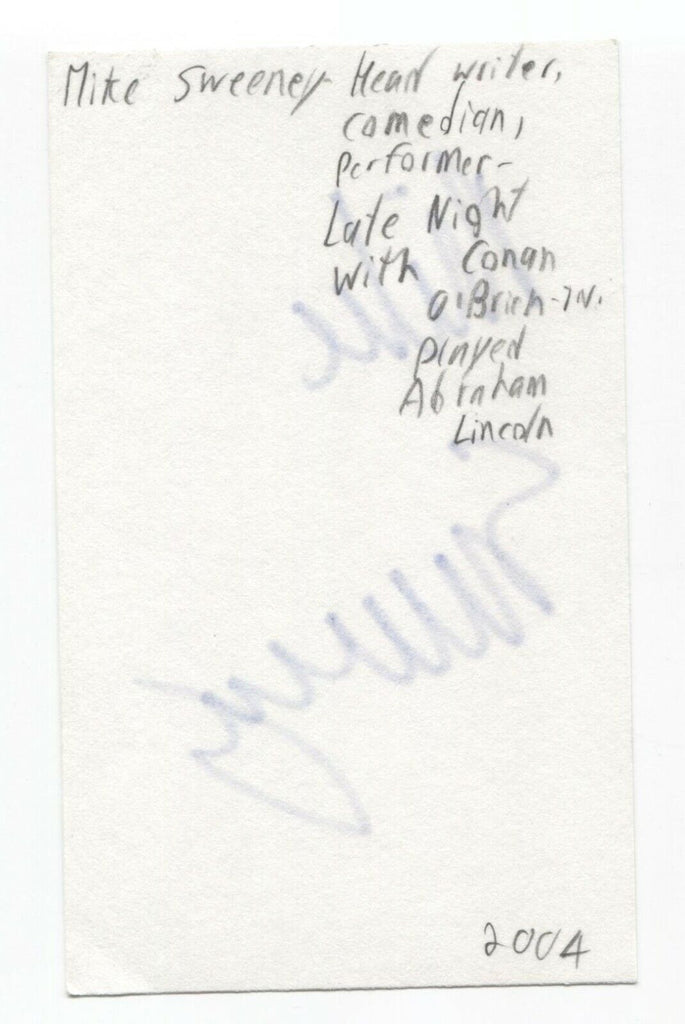 Mike Sweeney- Head writer,
comedian,
Performer-
Late Night
with Conan
O'Brien-TV.
played
Abraham
Lincoln
Mike
Sweeney
2004